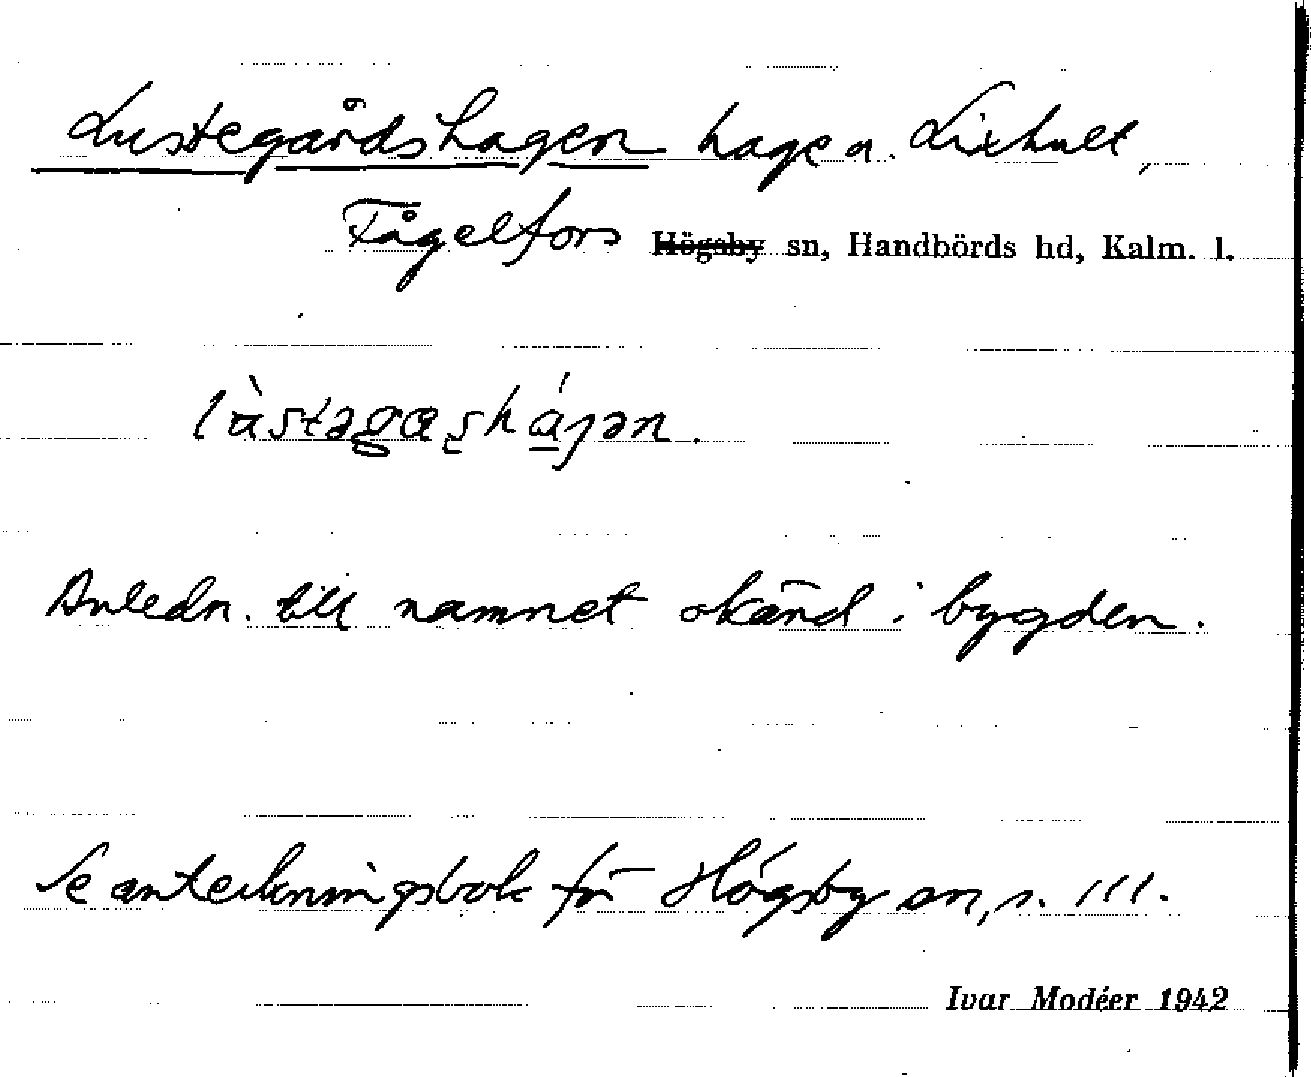 Lustegårdshagen hage a. Lixhult,
Fågelfors Högsby sn, Handbörds hd, Kalm. l.
Anledn. till namnet okänd i bygden.
Se anteckningsbok för Högsby sn, s. 111.
Ivar Modéer 1942